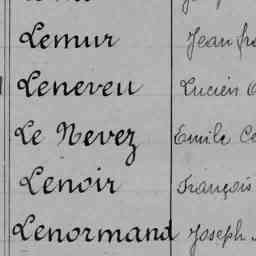 Lemur Jean
Leneveu Lucien
Le Nevez Emile
Lenoir François
Lenormand Joseph